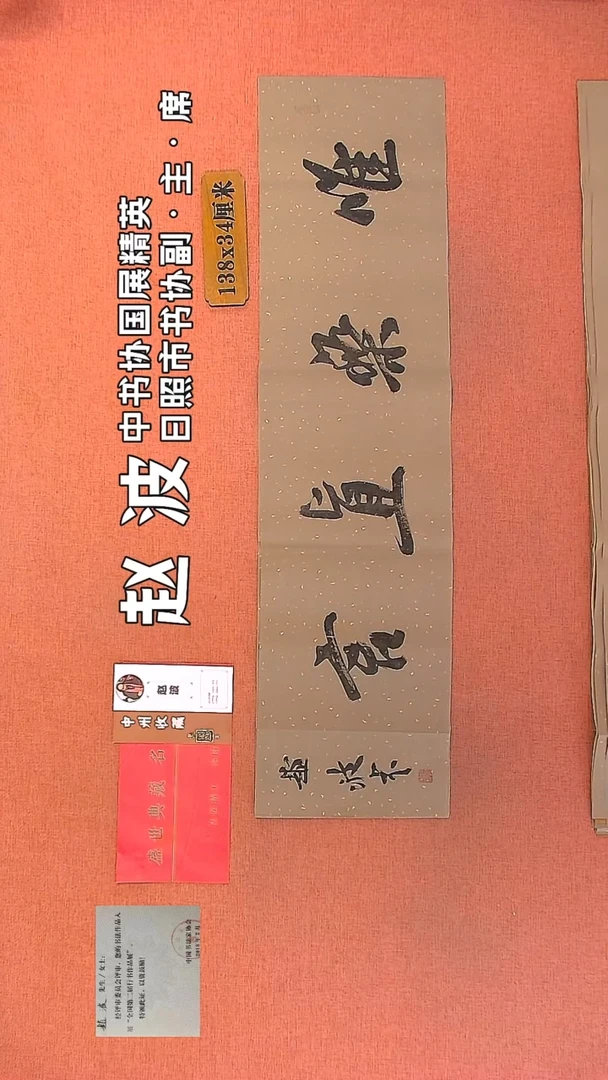 赵波
中书协国展精英
日照市书协副·主·席
138x34厘米
惟樂直言
赵波
中州收藏
盛世典藏 名
赵波 先生/女士:
经评审委员会评审,您的书法作品入
展“全国第二届行书作品展”。
特颁此证,以资鼓励!
中国书法家协会